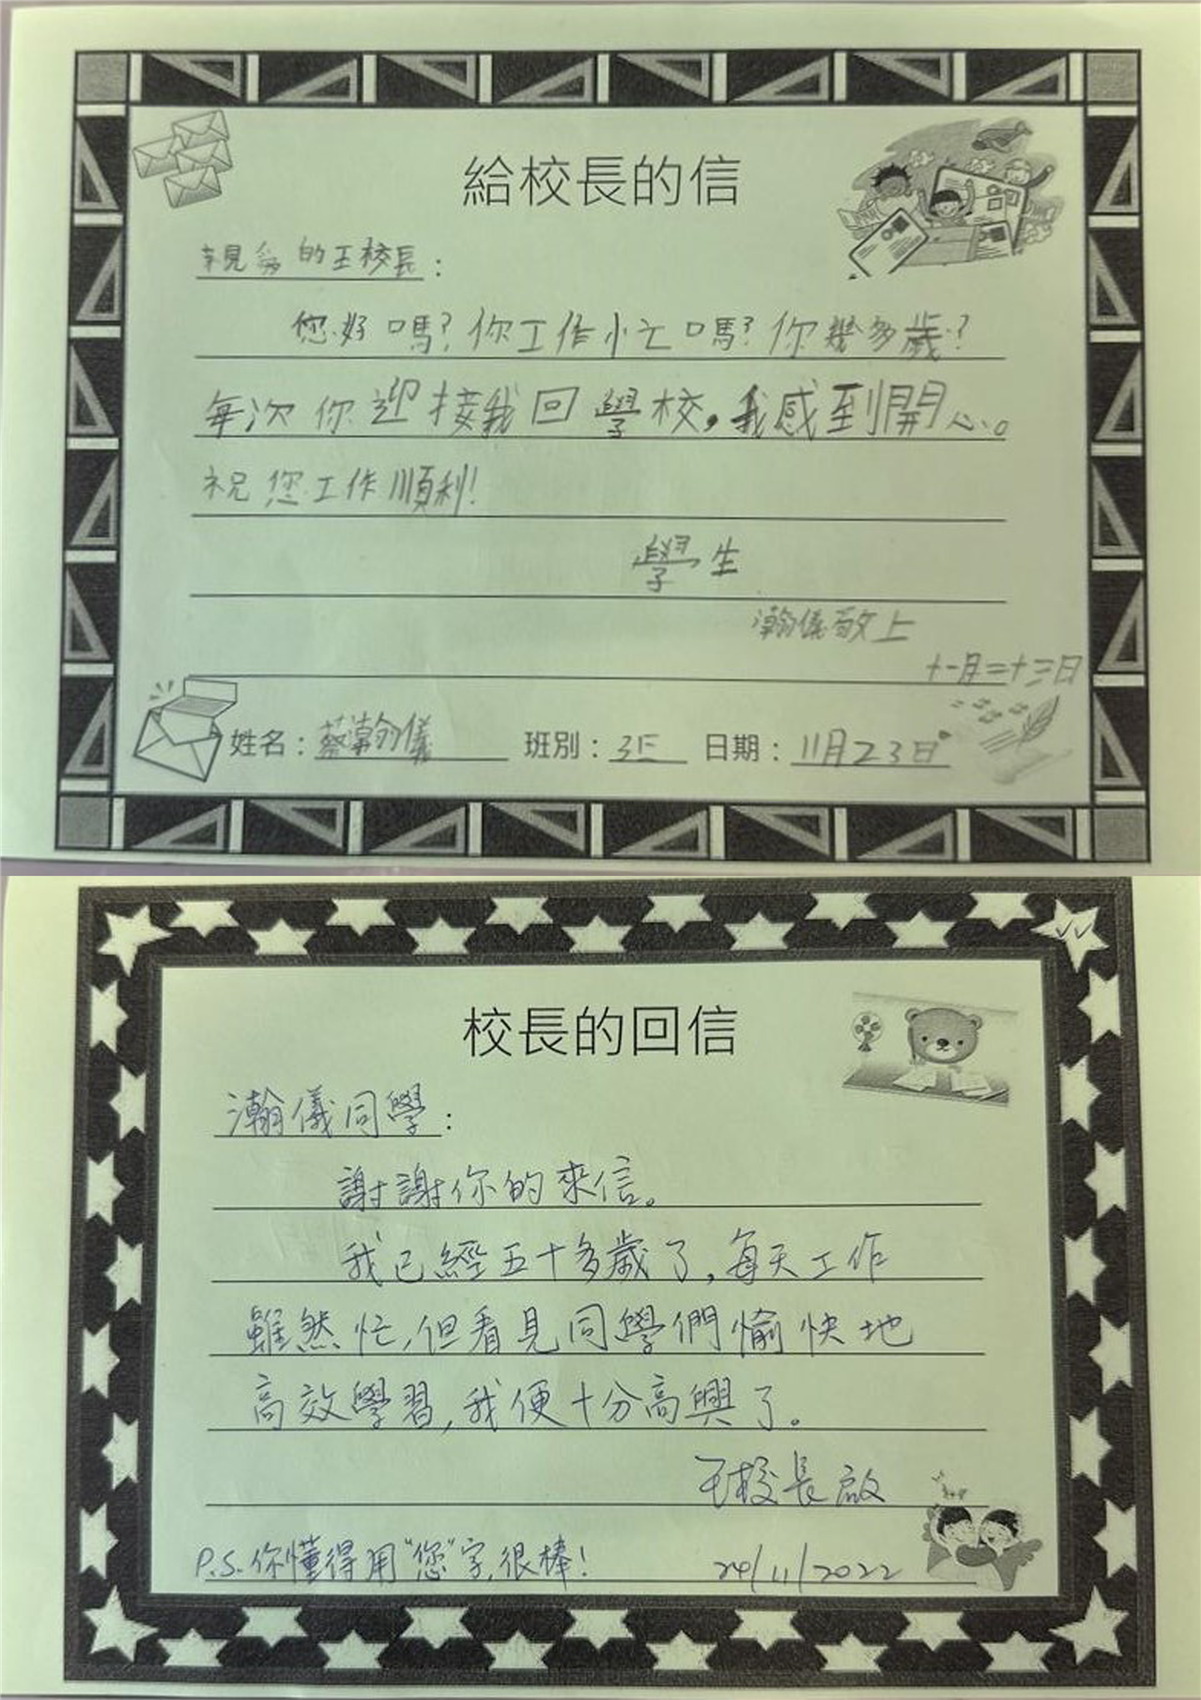 給校長的信
親愛的王校長：
您好嗎？你工作忙嗎？你幾多歲？
每次你迎接我回學校，我感到開心。
祝您工作順利！
學生
瀚儀敬上
十一月二十三日
姓名：蔡瀚儀 班別：3E 日期：11月23日
校長的回信
瀚儀同學：
謝謝你的來信。
我已經五十多歲了，每天工作
雖然忙，但看見同學們愉快地
高效學習，我便十分高興了。
王校長啟
P.S.你懂得用“您”字，很棒！ 24/11/2022